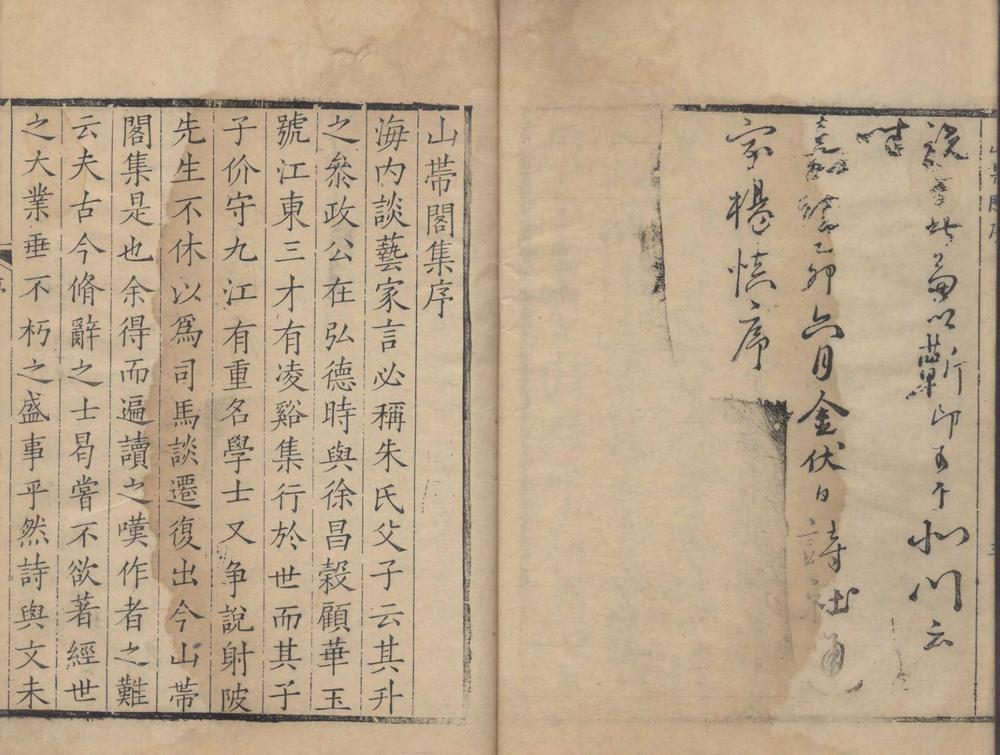 以蘄印可于 川云
時
嘉靖乙卯六月金伏日詩社通
家楊慎序
山帶閣集序
海内談藝家言必稱朱氏父子云其升
之叅政公在弘德時與徐昌穀顧華玉
號江東三才有凌谿集行於世而其子
子价守九江有重名學士又争說射陂
先生不休以爲司馬談遷復出今山帶
閣集是也余得而遍讀之嘆作者之難
云夫古今脩辭之士曷嘗不欲著經世
之大業垂不朽之盛事乎然詩與文未